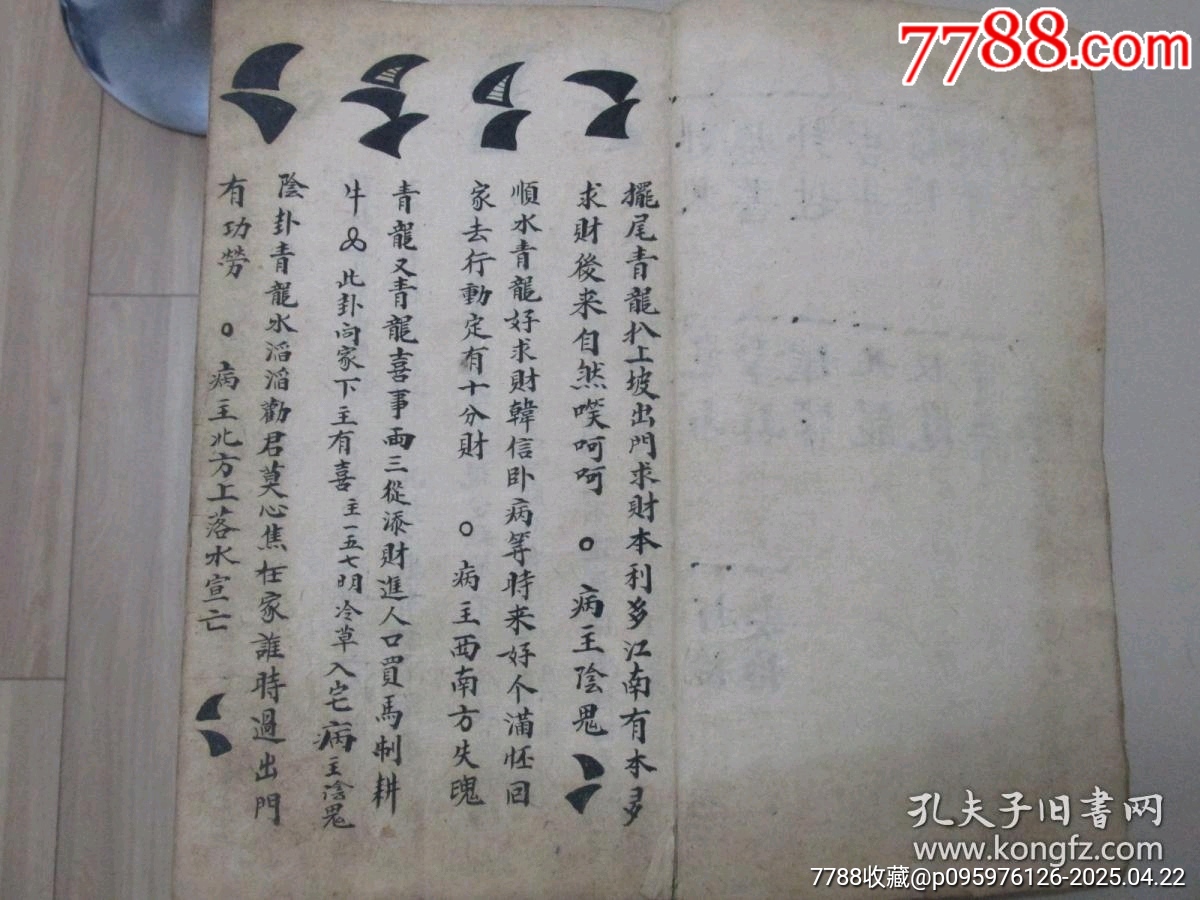 7788.com
擺尾青龍扒上坡出門求財本利多江南有本多
求財後来自然唉呵呵 o 病主陰鬼
順水青龍好求財韓信卧病等時来好个滿怀回
家去行動定有十分財 o 病主西南方失魂
青龍又青龍喜事兩三從添財進人口買馬制耕
牛 此卦向家下主有喜 主一五七明冷草入宅病主陰鬼
陰卦青龍水滔滔勸君莫心焦在家誰時過出門
有功勞 o 病主北方上落水宣亡
孔夫子旧書网
www.kongfz.com
7788收藏@p095976126-2025.04.22